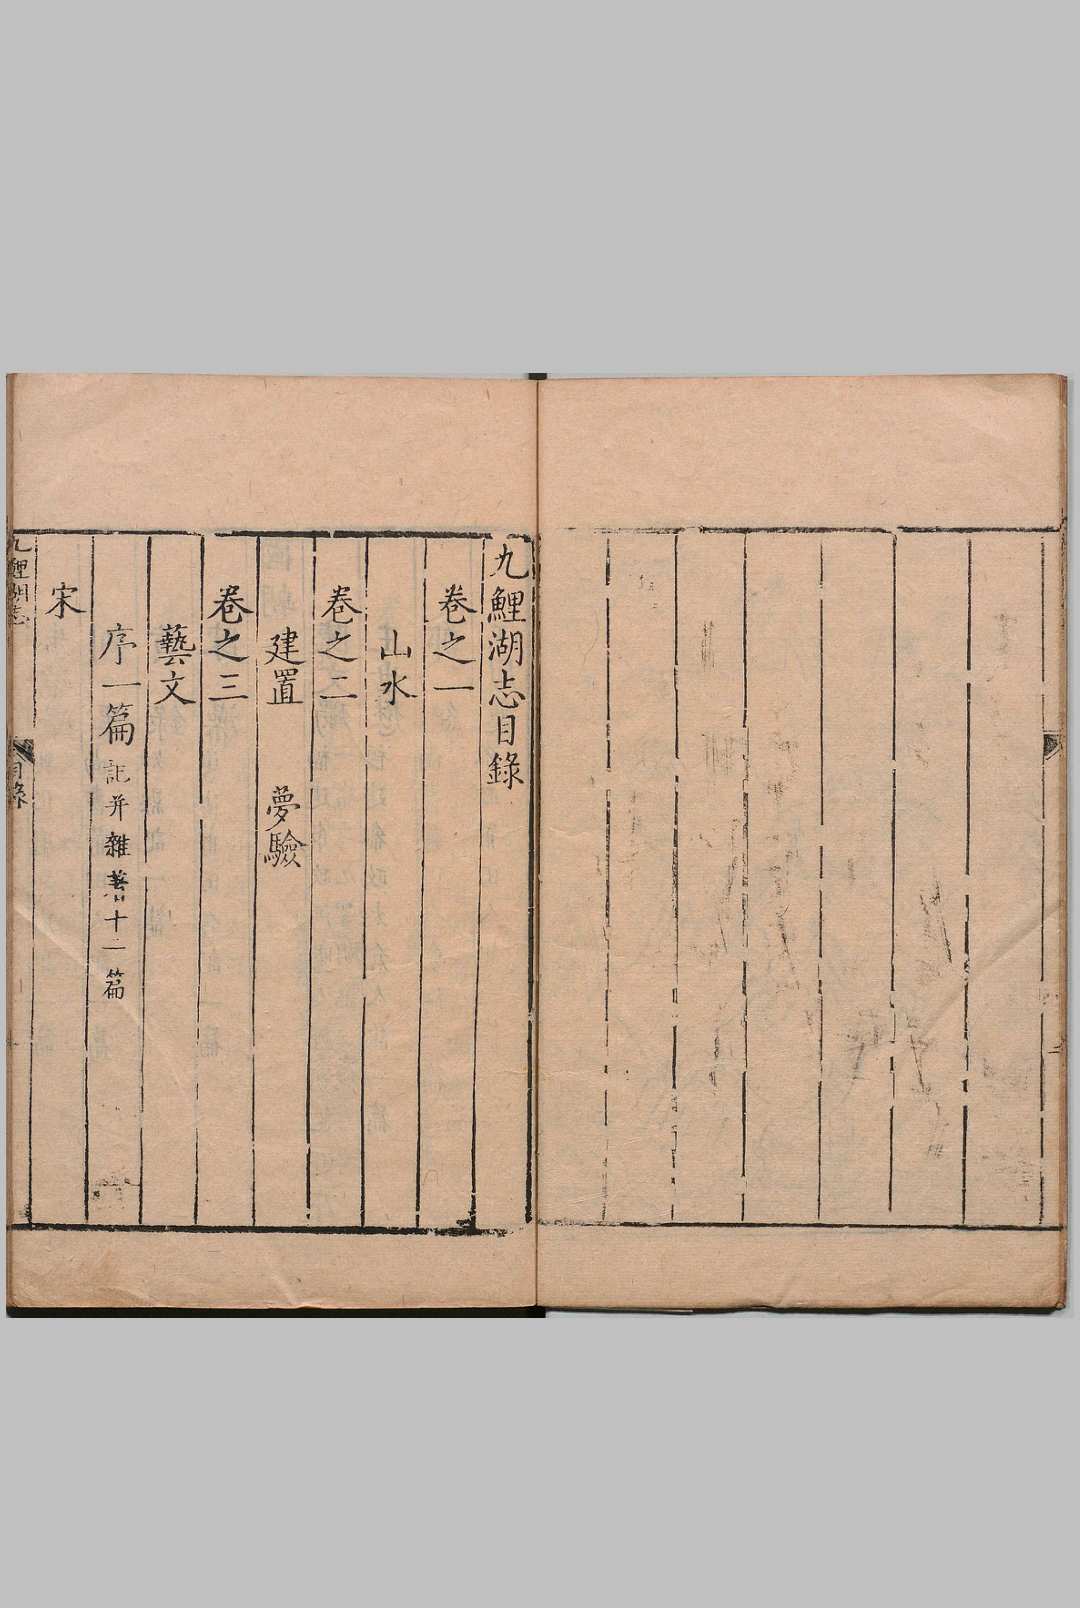 九鯉湖志目錄
卷之一
山水
卷之二
建置 夢驗
卷之三
藝文
序一篇 記并雜著十二篇
宋
九鯉湖志 目錄